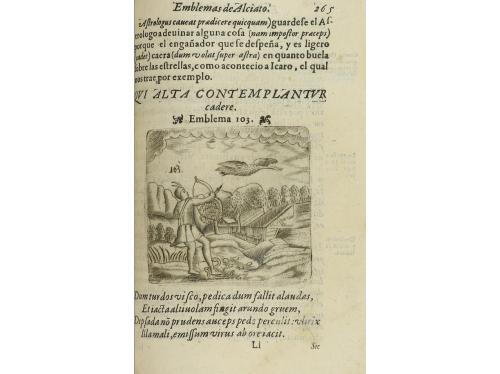 Emblemas de Alciato. 265
(Astrologus caueat prædicere quicquam) guardese el As-
trologo a deuinar alguna cosa (nam impostor præceps)
porque el engañador que se despeña, y es ligero
cadet) caera (dum volat super astra) en quanto buela
sobre las estrellas, como acontecio a Icaro, el qual
nos trae, por exemplo.
QVI ALTA CONTEMPLANTVR
cadere.
Emblema 103.
103
Dum turdos visco, pedica dum fallit alaudas,
Et iacta altiuolam figit arundo gruem,
Dipsada nō prudens auceps pede perculit: vltrix
Illa mali, emissum virus ab ore iacit.
Ll Sic